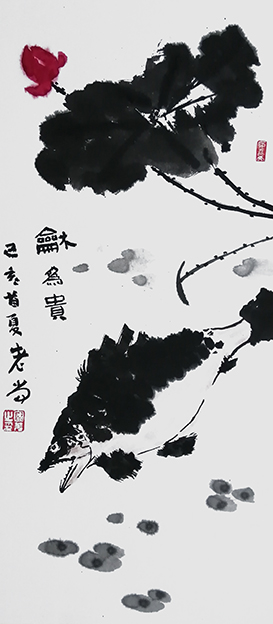 龢為貴
己亥首夏老尚